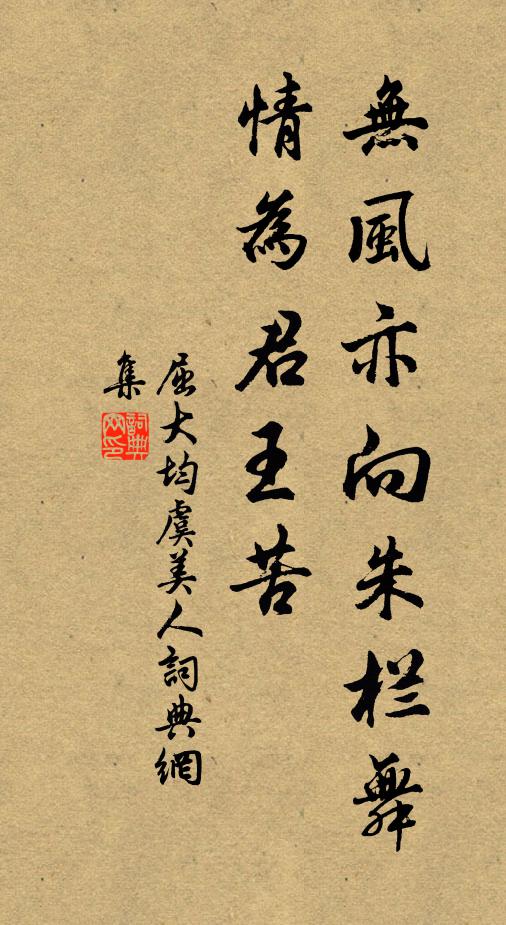 無風亦向朱栏舞
情為君王苦
屈大均虞美人詞典網
集
詞典網印